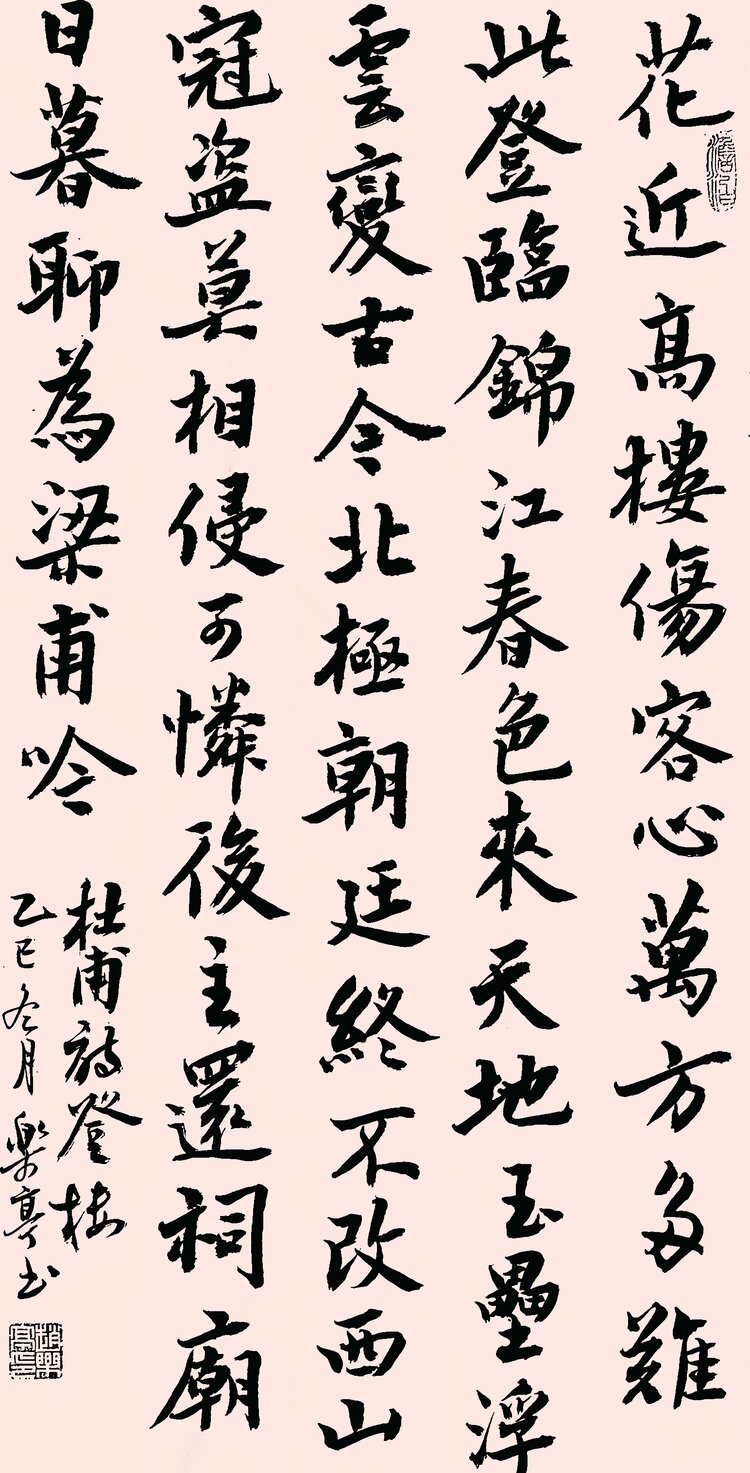 花近高樓傷客心萬方多難
此登臨錦江春色來天地玉壘浮
雲變古今北極朝廷終不改西山
寇盜莫相侵可憐後主還祠廟
日暮聊為梁甫吟
杜甫詩登樓
乙巳冬月樂亭書